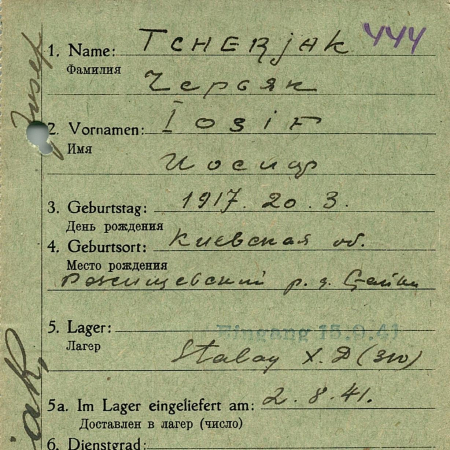 1. Name: TCHERJAK 444
Фамилия
Черяк
2. Vornamen: IOSIF
Имя
Иосиф
3. Geburtstag: 1917. 20. 3.
День рождения
4. Geburtsort: Киевская об.
Место рождения
р. д.
5. Lager: Eingang 15.9.41
Лагер
Stalag X. D (310)
5a. Im Lager eingeliefert am: 2. 8. 41.
Доставлен в лагер (число)
6. Dienstgrad:
Jusef